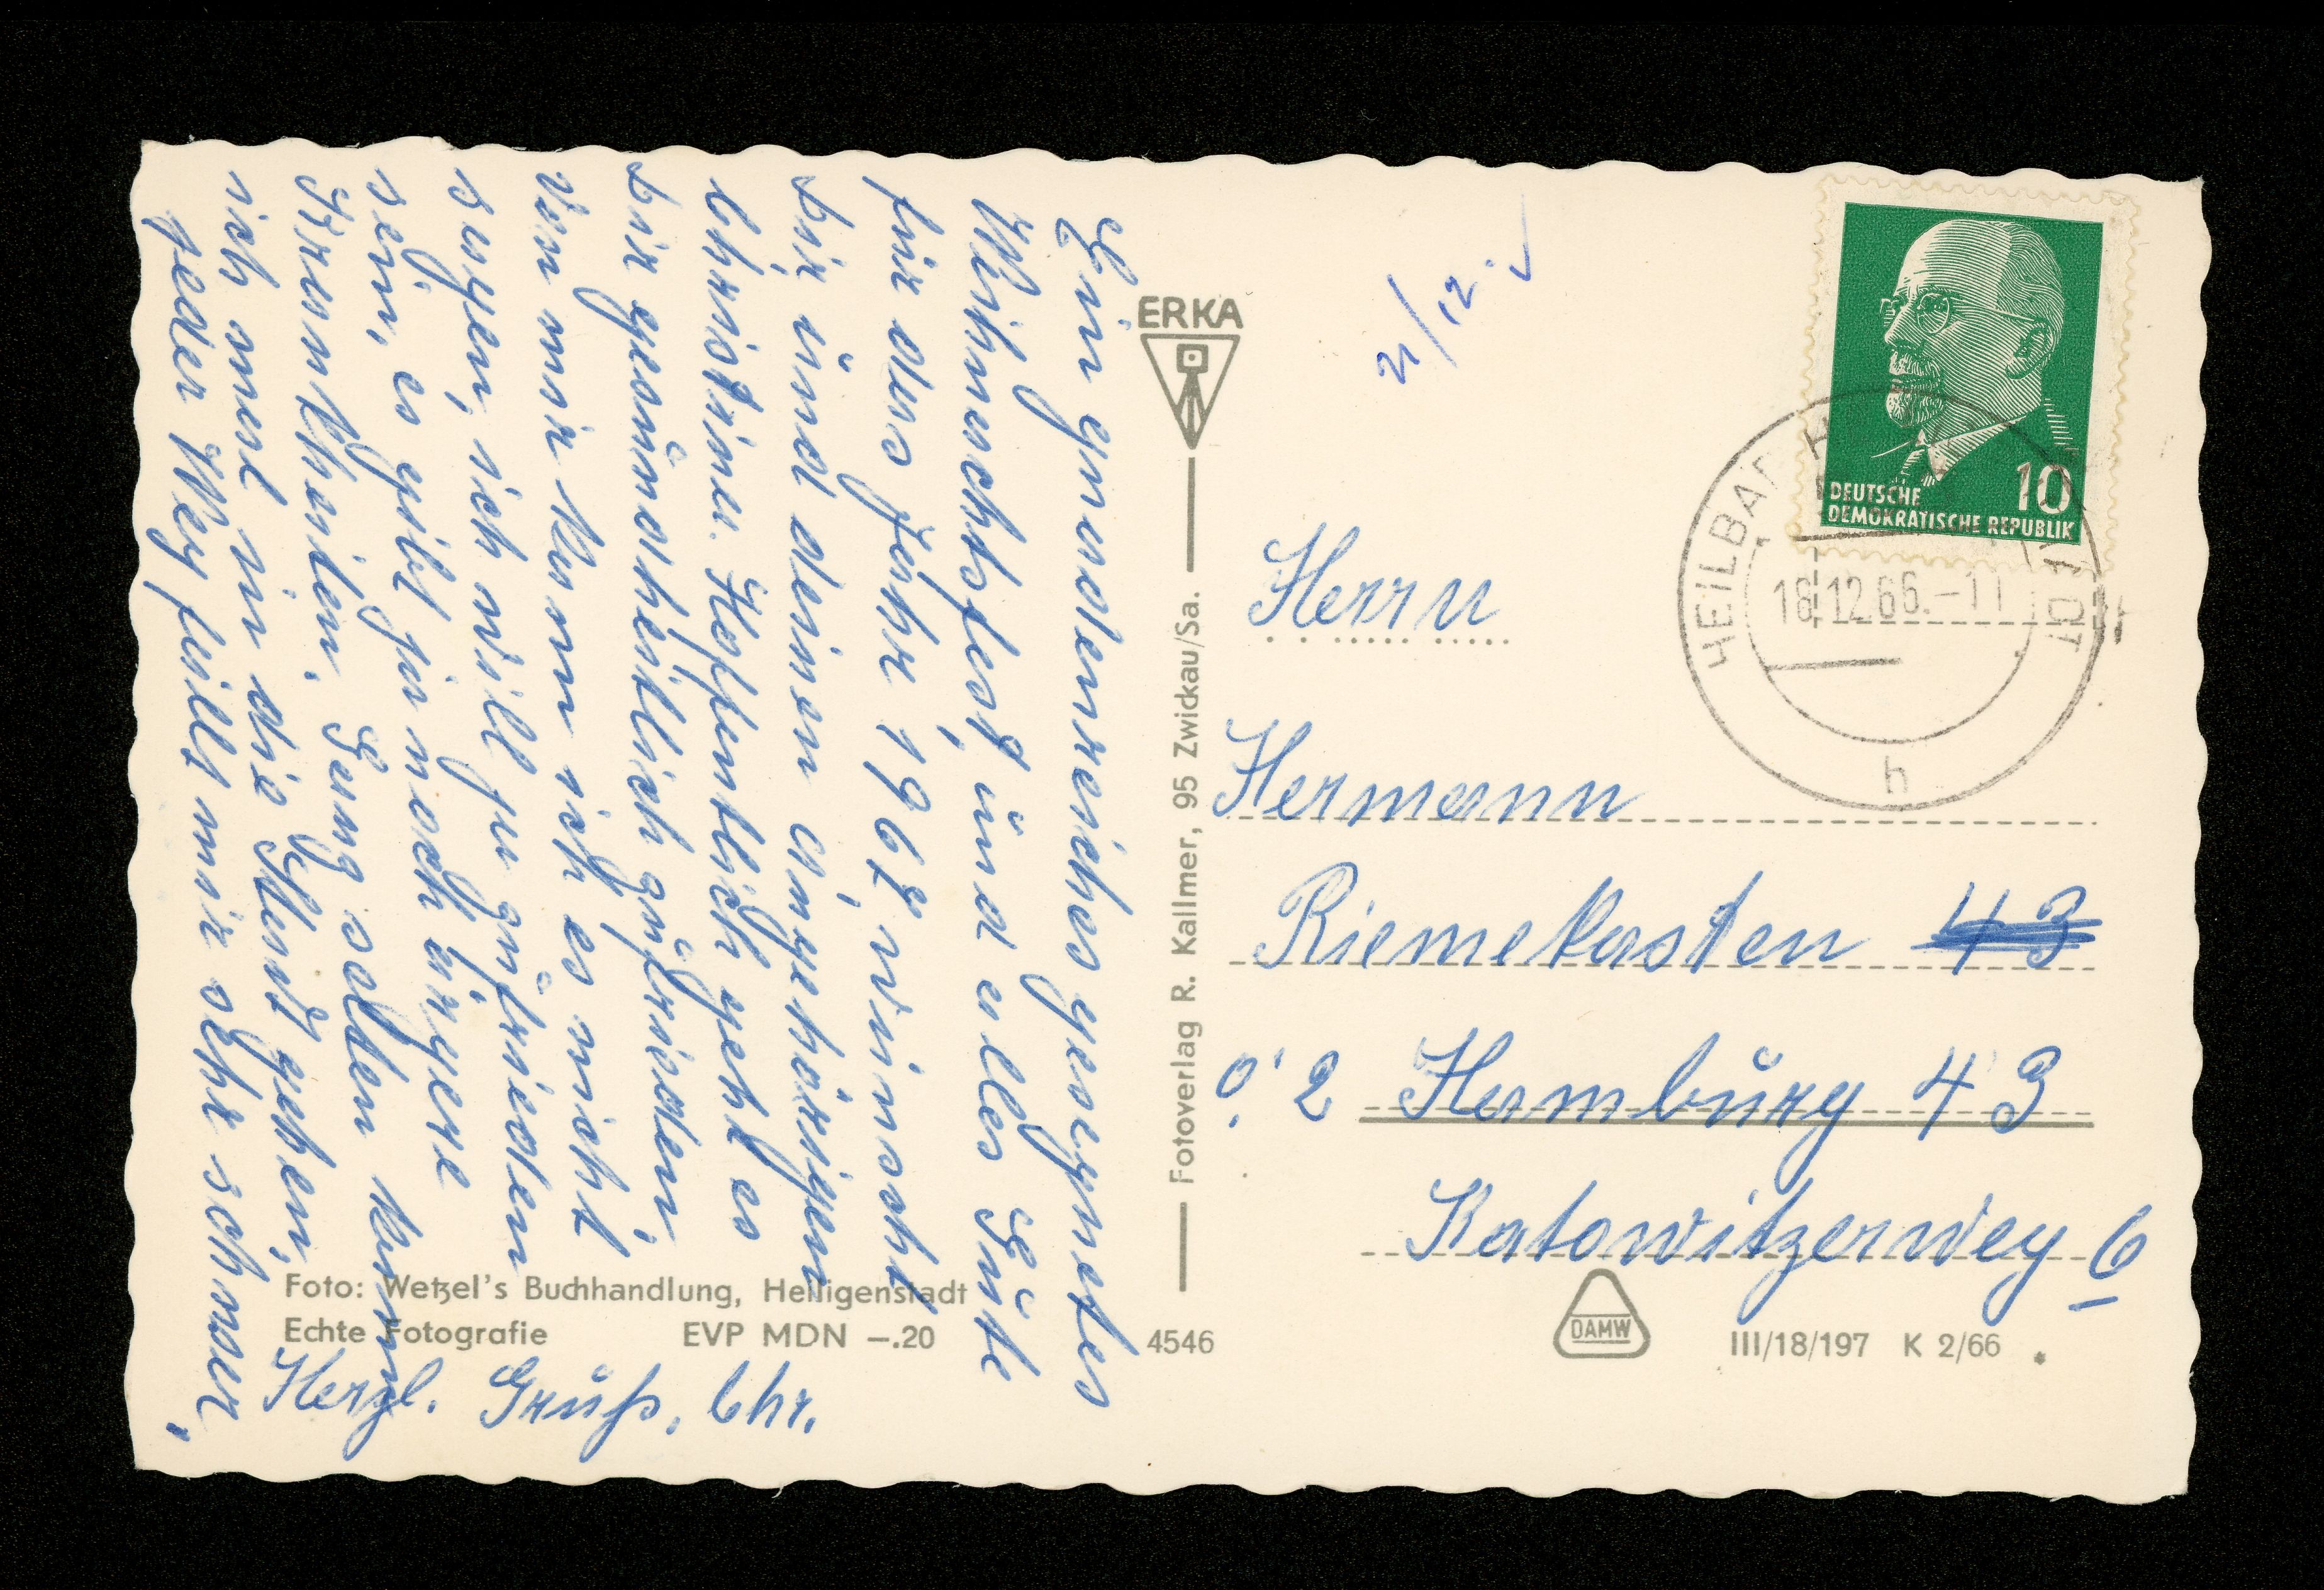 Ein gnadenreiches gesegnetes
Weihnachtsfest, und alles Gute
für das Jahr 1967, wünscht
Dir und deinen Angehörigen
Christine. Hoffentlich geht es
Dir gesundheitlich zufrieden,
von mir kann ich es nicht
sagen, ich will zu zufrieden
sein, es gibt ja noch ärgere
Krankheiten. Ganz selten kann
ich mal in die Stadt gehen,
jeder Weg fällt mir sehr schwer,
Herzl. Gruß, Chr.
Foto: Wetzel's Buchhandlung, Heiligenstadt
Echte Fotografie EVP MDN –.20
4546
ERKA
Fotoverlag R. Kallmer, 95 Zwickau/Sa.
21/12.
DEUTSCHE
DEMOKRATISCHE REPUBLIK
10
HEILBAD
18.12.66.-11
h
Herrn
Hermann
Riemekasten 43
2 Hamburg 43
Katowitzerweg 6
DAMW
III/18/197 K 2/66